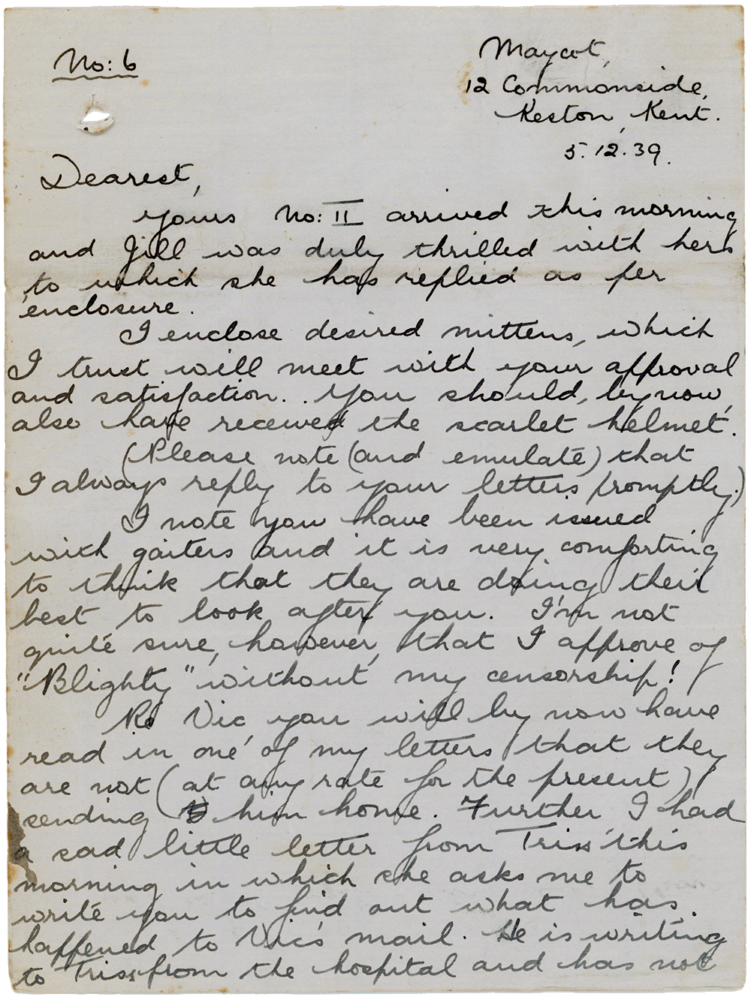 No: 6
Maycot,
12 Commonside,
Keston, Kent.
5.12.39.
Dearest,
Yours No: II arrived this morning
and Jill was duly thrilled with hers
to which she has replied as per
enclosure.
I enclose desired mittens, which
I trust will meet with your approval
and satisfaction. . You should, by now,
also have received the scarlet helmet.
(Please note (and emulate) that
I always reply to your letters promptly.)
I note you have been issued
with gaiters and it is very comforting
to think that they are doing their
best to look after you. I'm not
quite sure, however, that I approve of
"Blighty" without my censorship!
Re Vic you will by now have
read in one of my letters that they
are not (at any rate for the present)
sending him home. Further I had
a sad little letter from Triss this
morning in which she asks me to
write you to find out what has
happened to Vic's mail. He is writing
to Triss from the hospital and has not